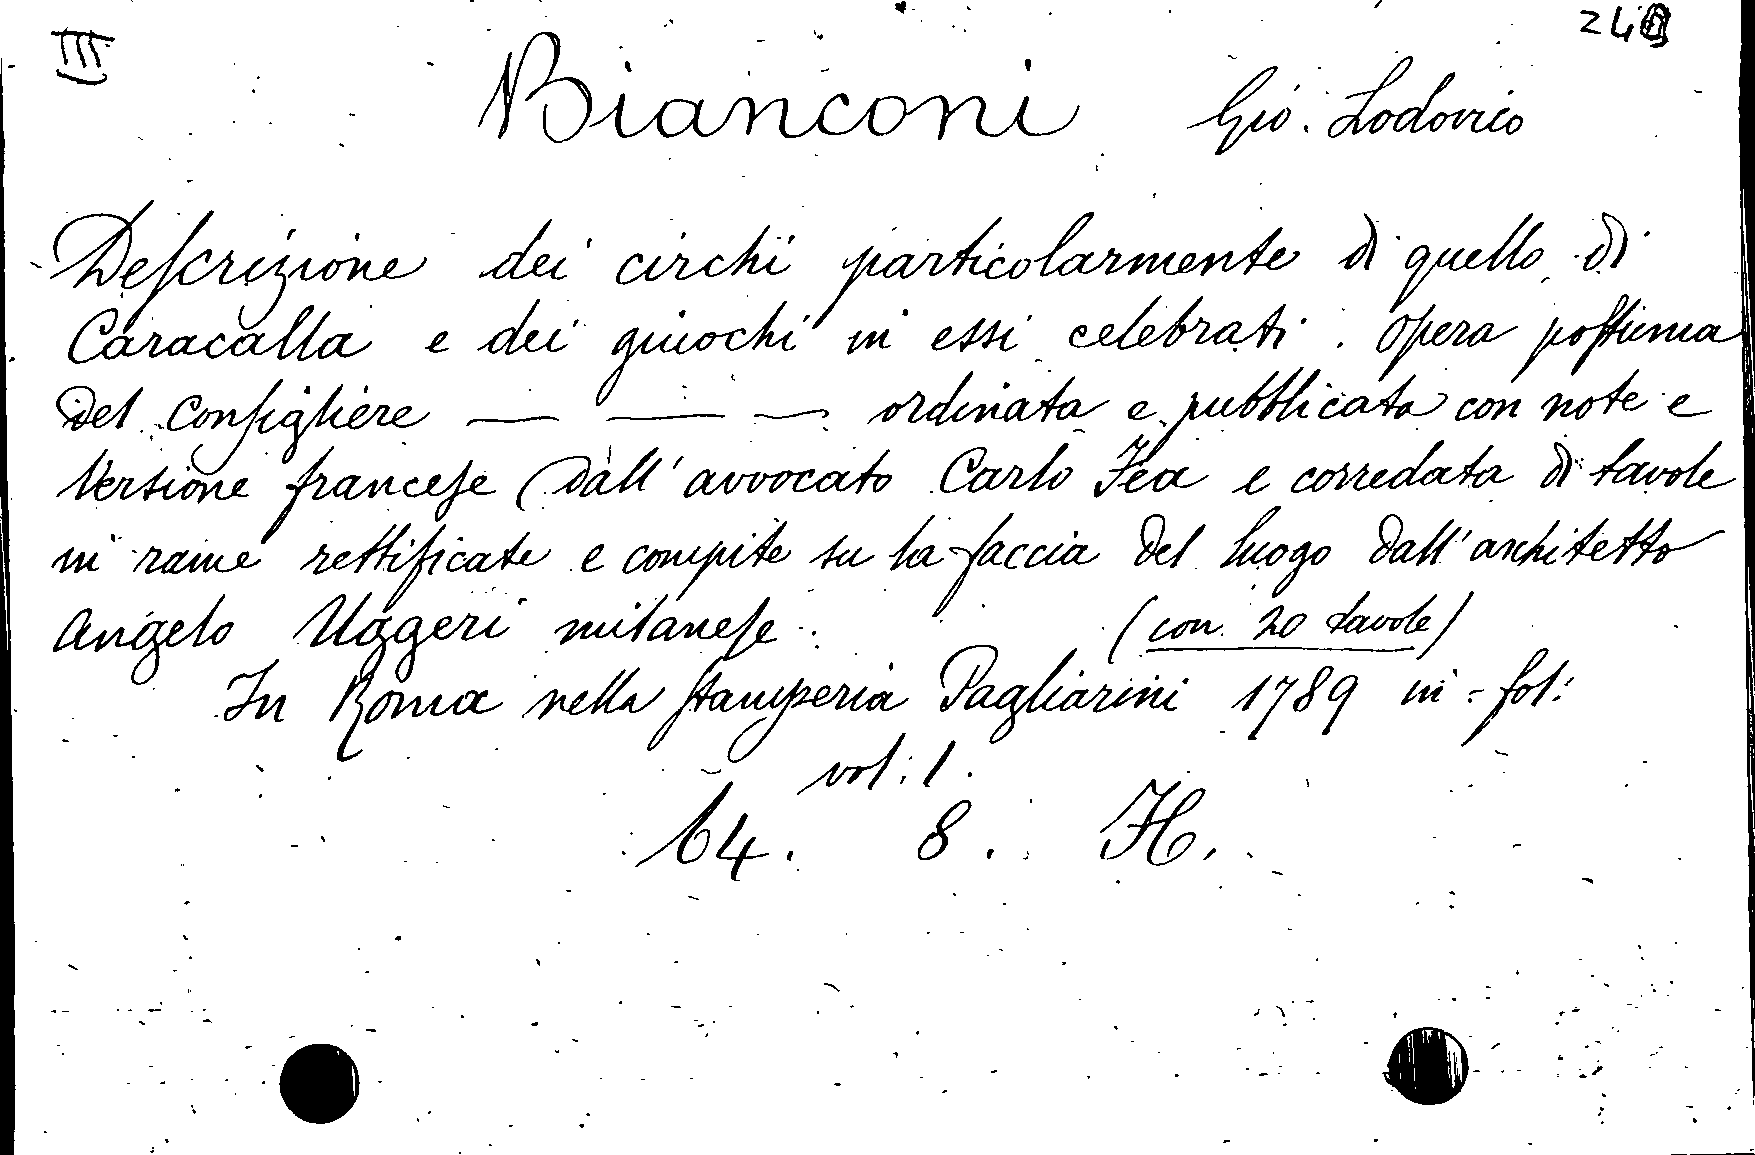 III
Bianconi Gio. Lodovico
Descrizione dei circhi particolarmente di quello di
Caracalla e dei giuochi in essi celebrati. Opera postuma
del Consigliere — — — ordinata e pubblicata con note e
versione francese (dall' avvocato Carlo Fea e corredata di tavole
in rame rettificate e compite su la faccia del luogo dall' architetto
Angelo Uggeri milanese. (con 20 tavole)
In Roma nella stamperia Pagliarini 1789 in-fol:
vol: 1.
64. 8. H.